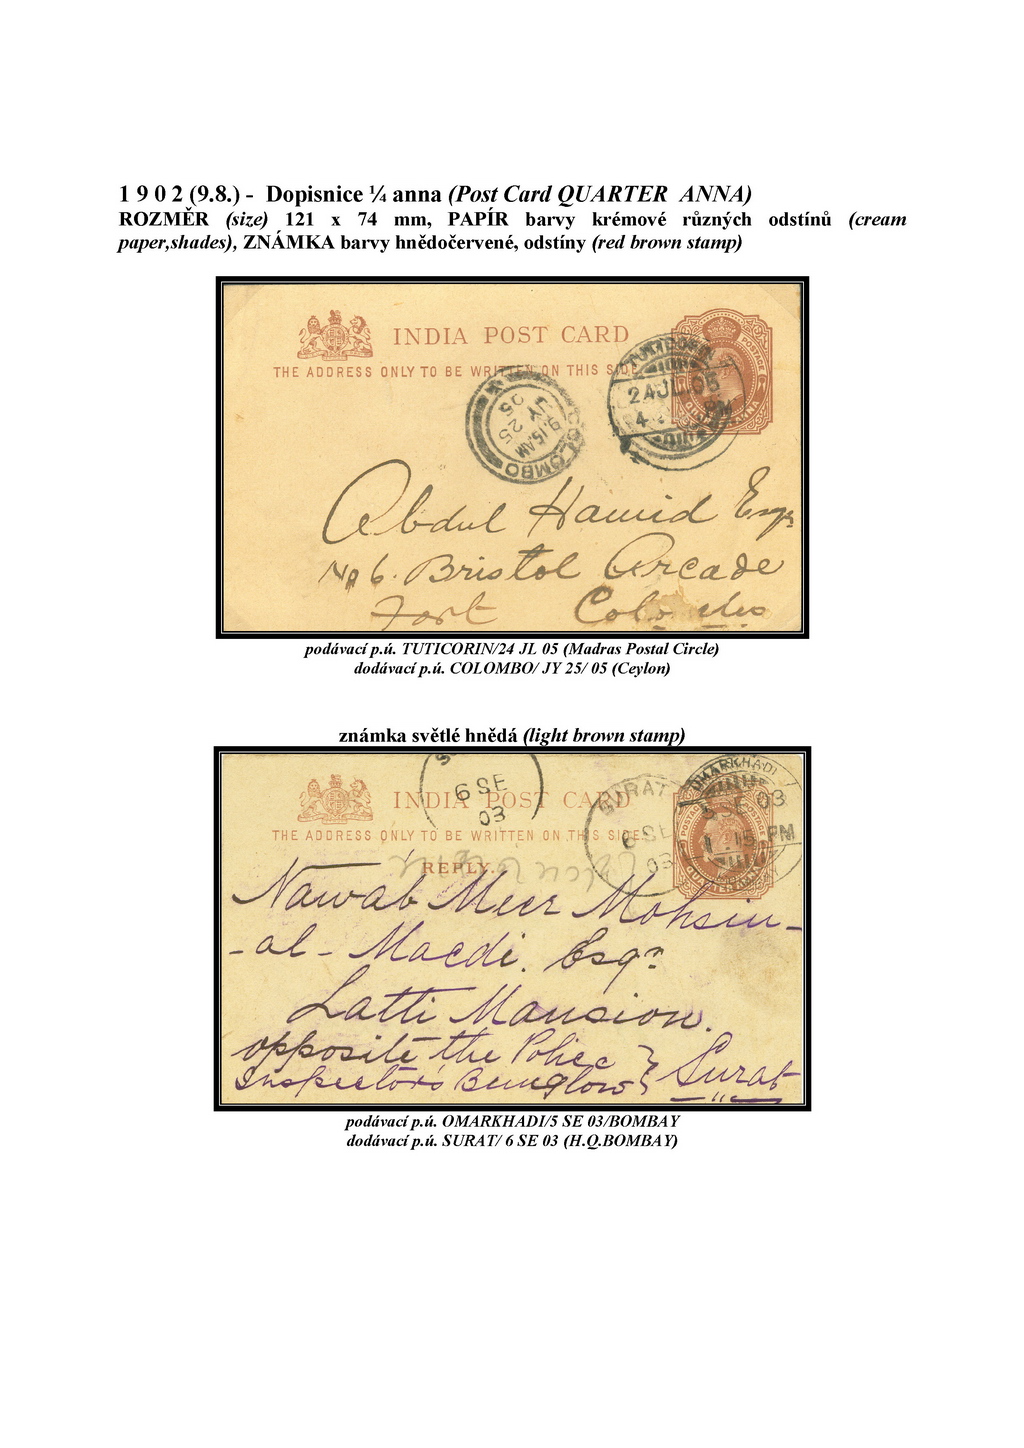 1 9 0 2 (9.8.) - Dopisnice ¼ anna (Post Card QUARTER ANNA)
ROZMĚR (size) 121 x 74 mm, PAPÍR barvy krémové různých odstínů (cream
paper,shades), ZNÁMKA barvy hnědočervené, odstíny (red brown stamp)
INDIA POST CARD
THE ADDRESS ONLY TO BE WRITTEN ON THIS SIDE
TUTICORIN
24 JL 05
PM
COLOMBO
9.15 AM
JY 25
05
POSTAGE
Abdul Hamid Esqr
No 6. Bristol Arcade
Fort Colombo
podávací p.ú. TUTICORIN/24 JL 05 (Madras Postal Circle)
dodávací p.ú. COLOMBO/ JY 25/ 05 (Ceylon)
známka světlé hnědá (light brown stamp)
6 SE
03
INDIA POST CARD
THE ADDRESS ONLY TO BE WRITTEN ON THIS SIDE
REPLY
SURAT
6 SE
03
OMARKHADI
5 SE 03
1.15 PM
POSTAGE
QUARTER ANNA
Nawab Meer Mohsin-
-al- Macdi. Esqr
Latti Mansion.
opposite the Police
Inspector's Bunglow } Surat
podávací p.ú. OMARKHADI/5 SE 03/BOMBAY
dodávací p.ú. SURAT/ 6 SE 03 (H.Q.BOMBAY)